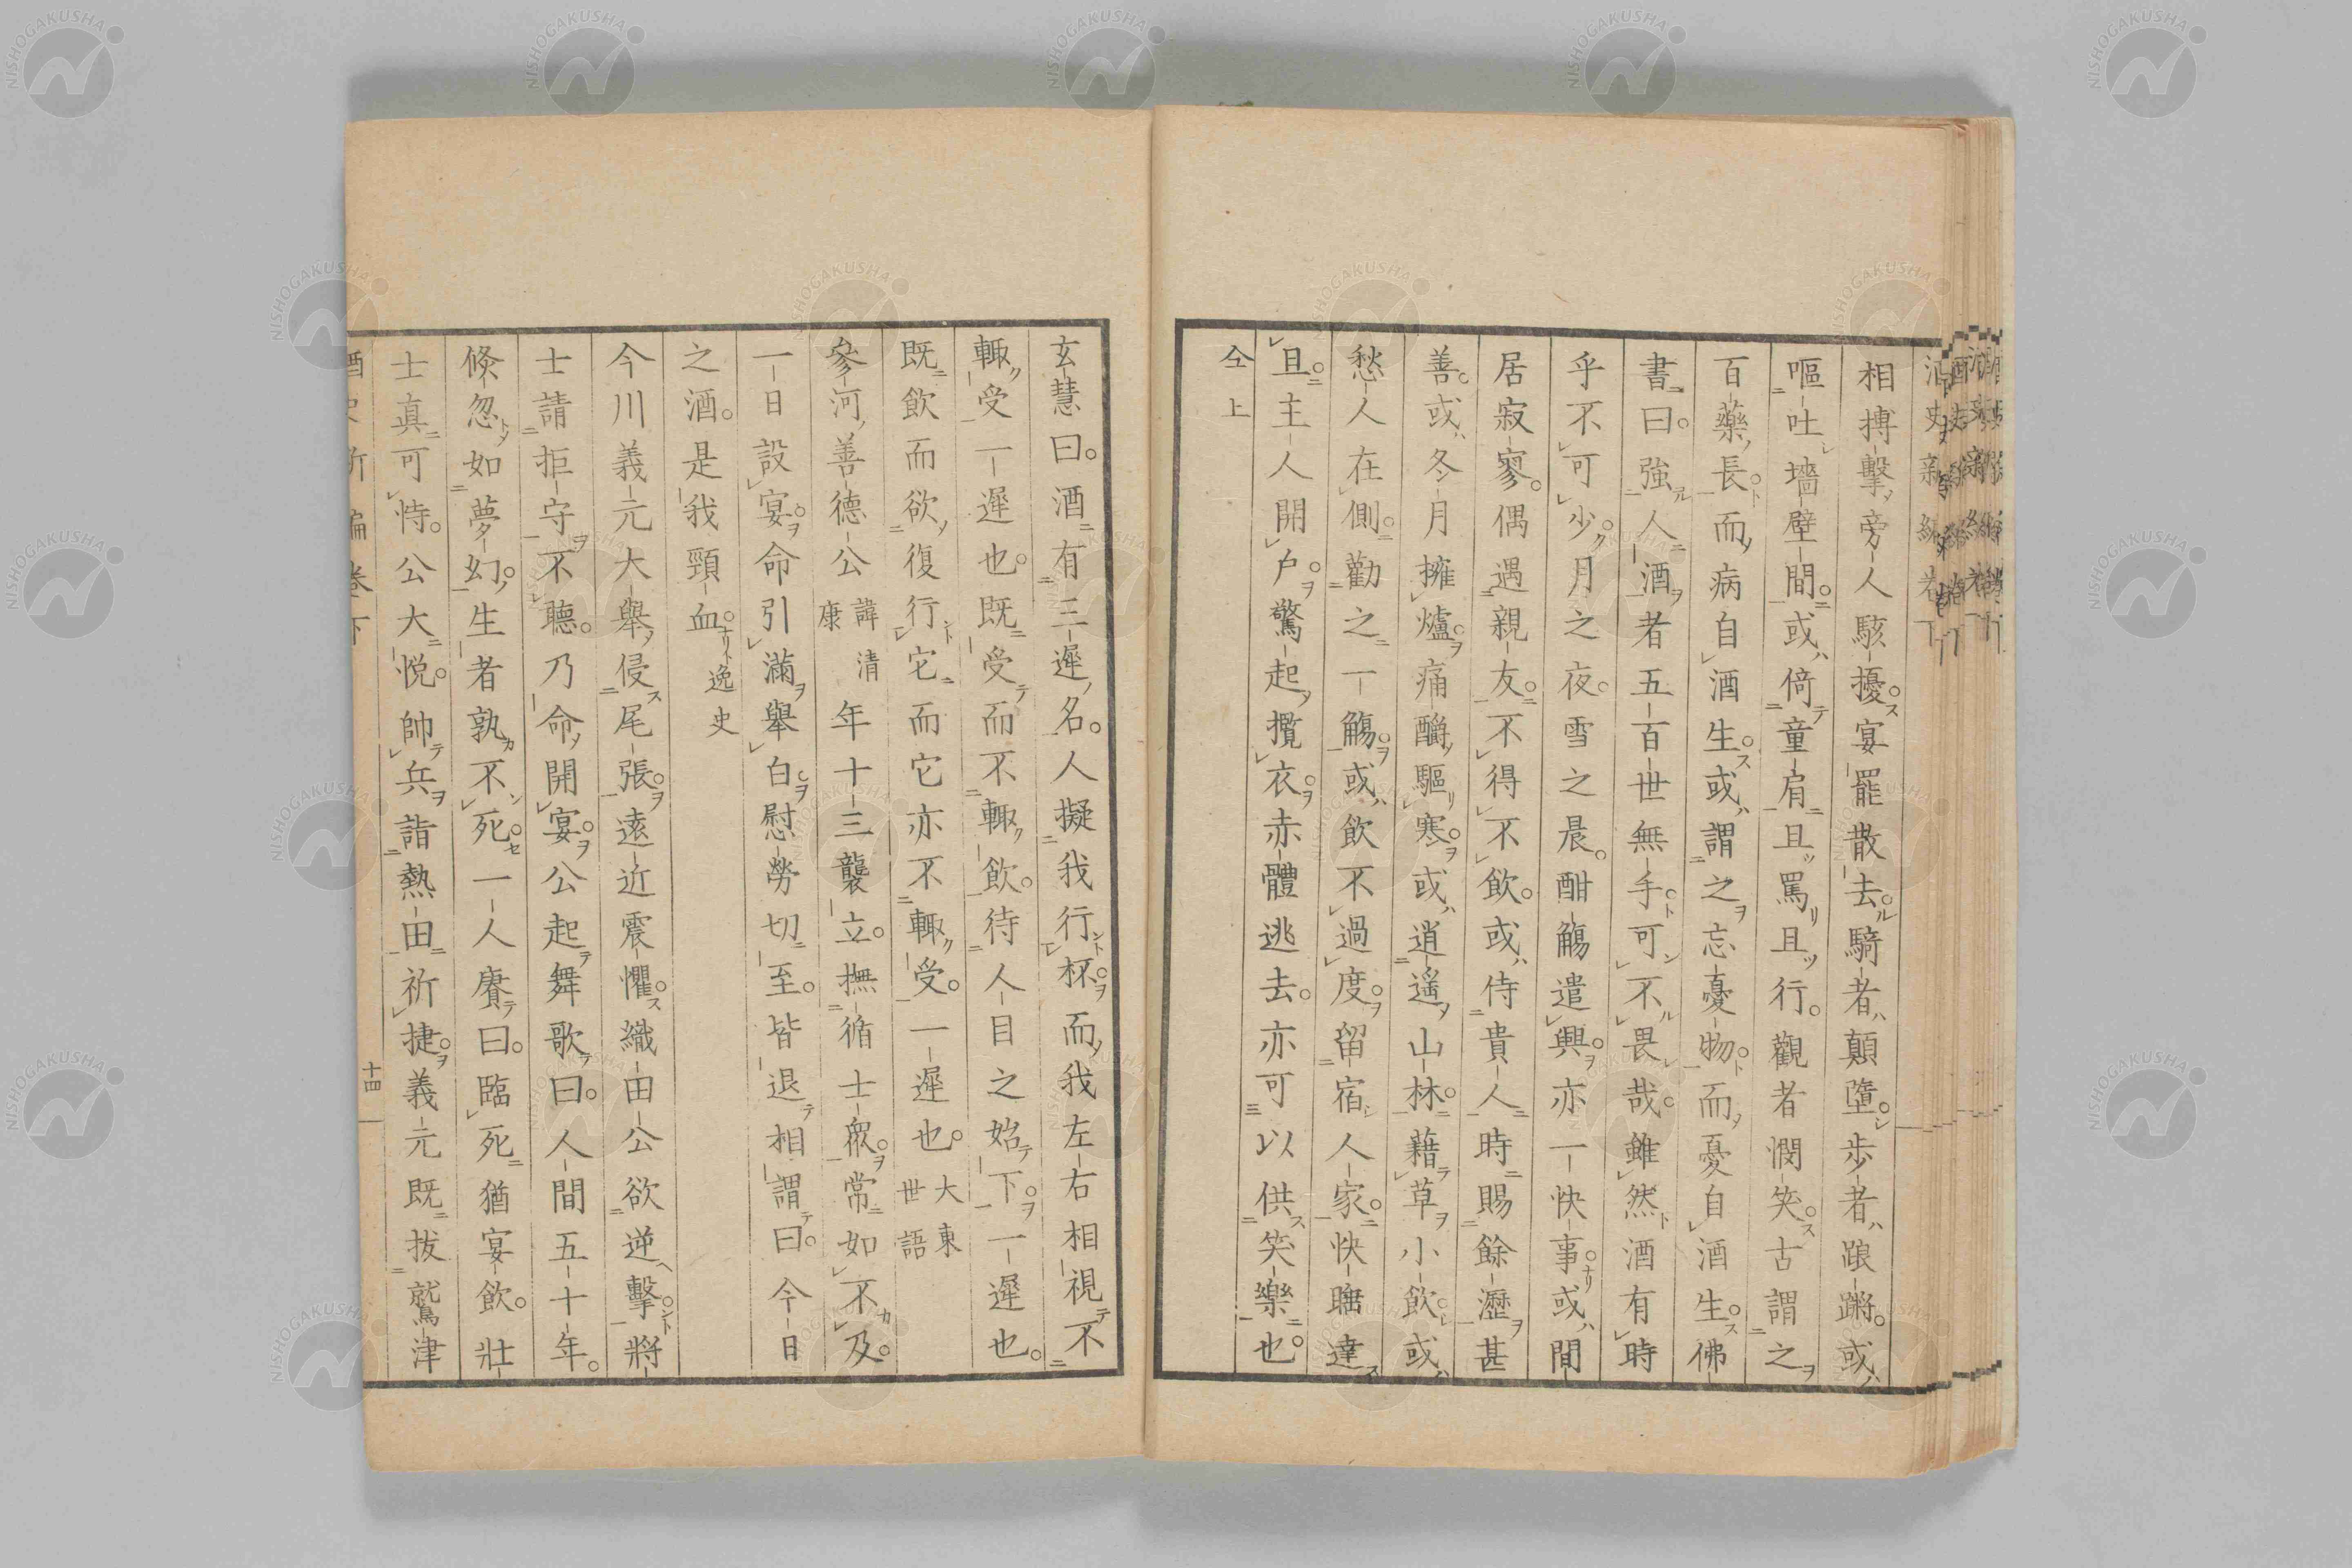 相搏擊旁人駭擾宴罷散去騎者顛墮步者踉蹡或
嘔吐墻壁間或倚童肩且罵且行觀者憫笑古謂之
百藥長而病自酒生或謂之忘憂物而憂自酒生佛
書曰強人酒者五百世無手可不畏哉雖然酒有時
乎不可少月之夜雪之晨酣觴遣興亦一快事或間
居寂寥偶遇親友不得不飲或侍貴人時賜餘瀝甚
善或冬月擁爐痛醑驅寒或逍遙山林藉草小飲或
愁人在側勸之一觴或飲不過度留宿人家快睡達
且主人開戶驚起攬衣赤體逃去亦可以供笑樂也
仝上
玄慧曰酒有三遲名人擬我行杯而我左右相視不
輙受一遲也既受而不輙飲待人目之始下一遲也
既飲而欲復行它而它亦不輙受一遲也 大東世語
參河善德公 諱清康 年十三襲立撫循士眾常如不及
一日設宴命引滿舉白慰勞切至皆退相謂曰今日
之酒是我頸血 逸史
今川義元大舉侵尾張遠近震懼織田公欲逆擊將
士請拒守不聽乃命開宴公起舞歌曰人間五十年
倏忽如夢幻生者孰不死一人賡曰臨死猶宴飲壯
士真可恃公大悅帥兵詣熱田祈捷義元既拔鷲津
酒史新編卷下
十四